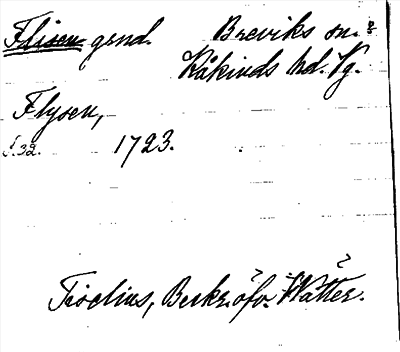 Flisen gend. Breviks sn.
Kåkinds hd. Vg.
Flysen,
s. 32. 1723.
Tiselius, Beskr. öfv. Wätter.